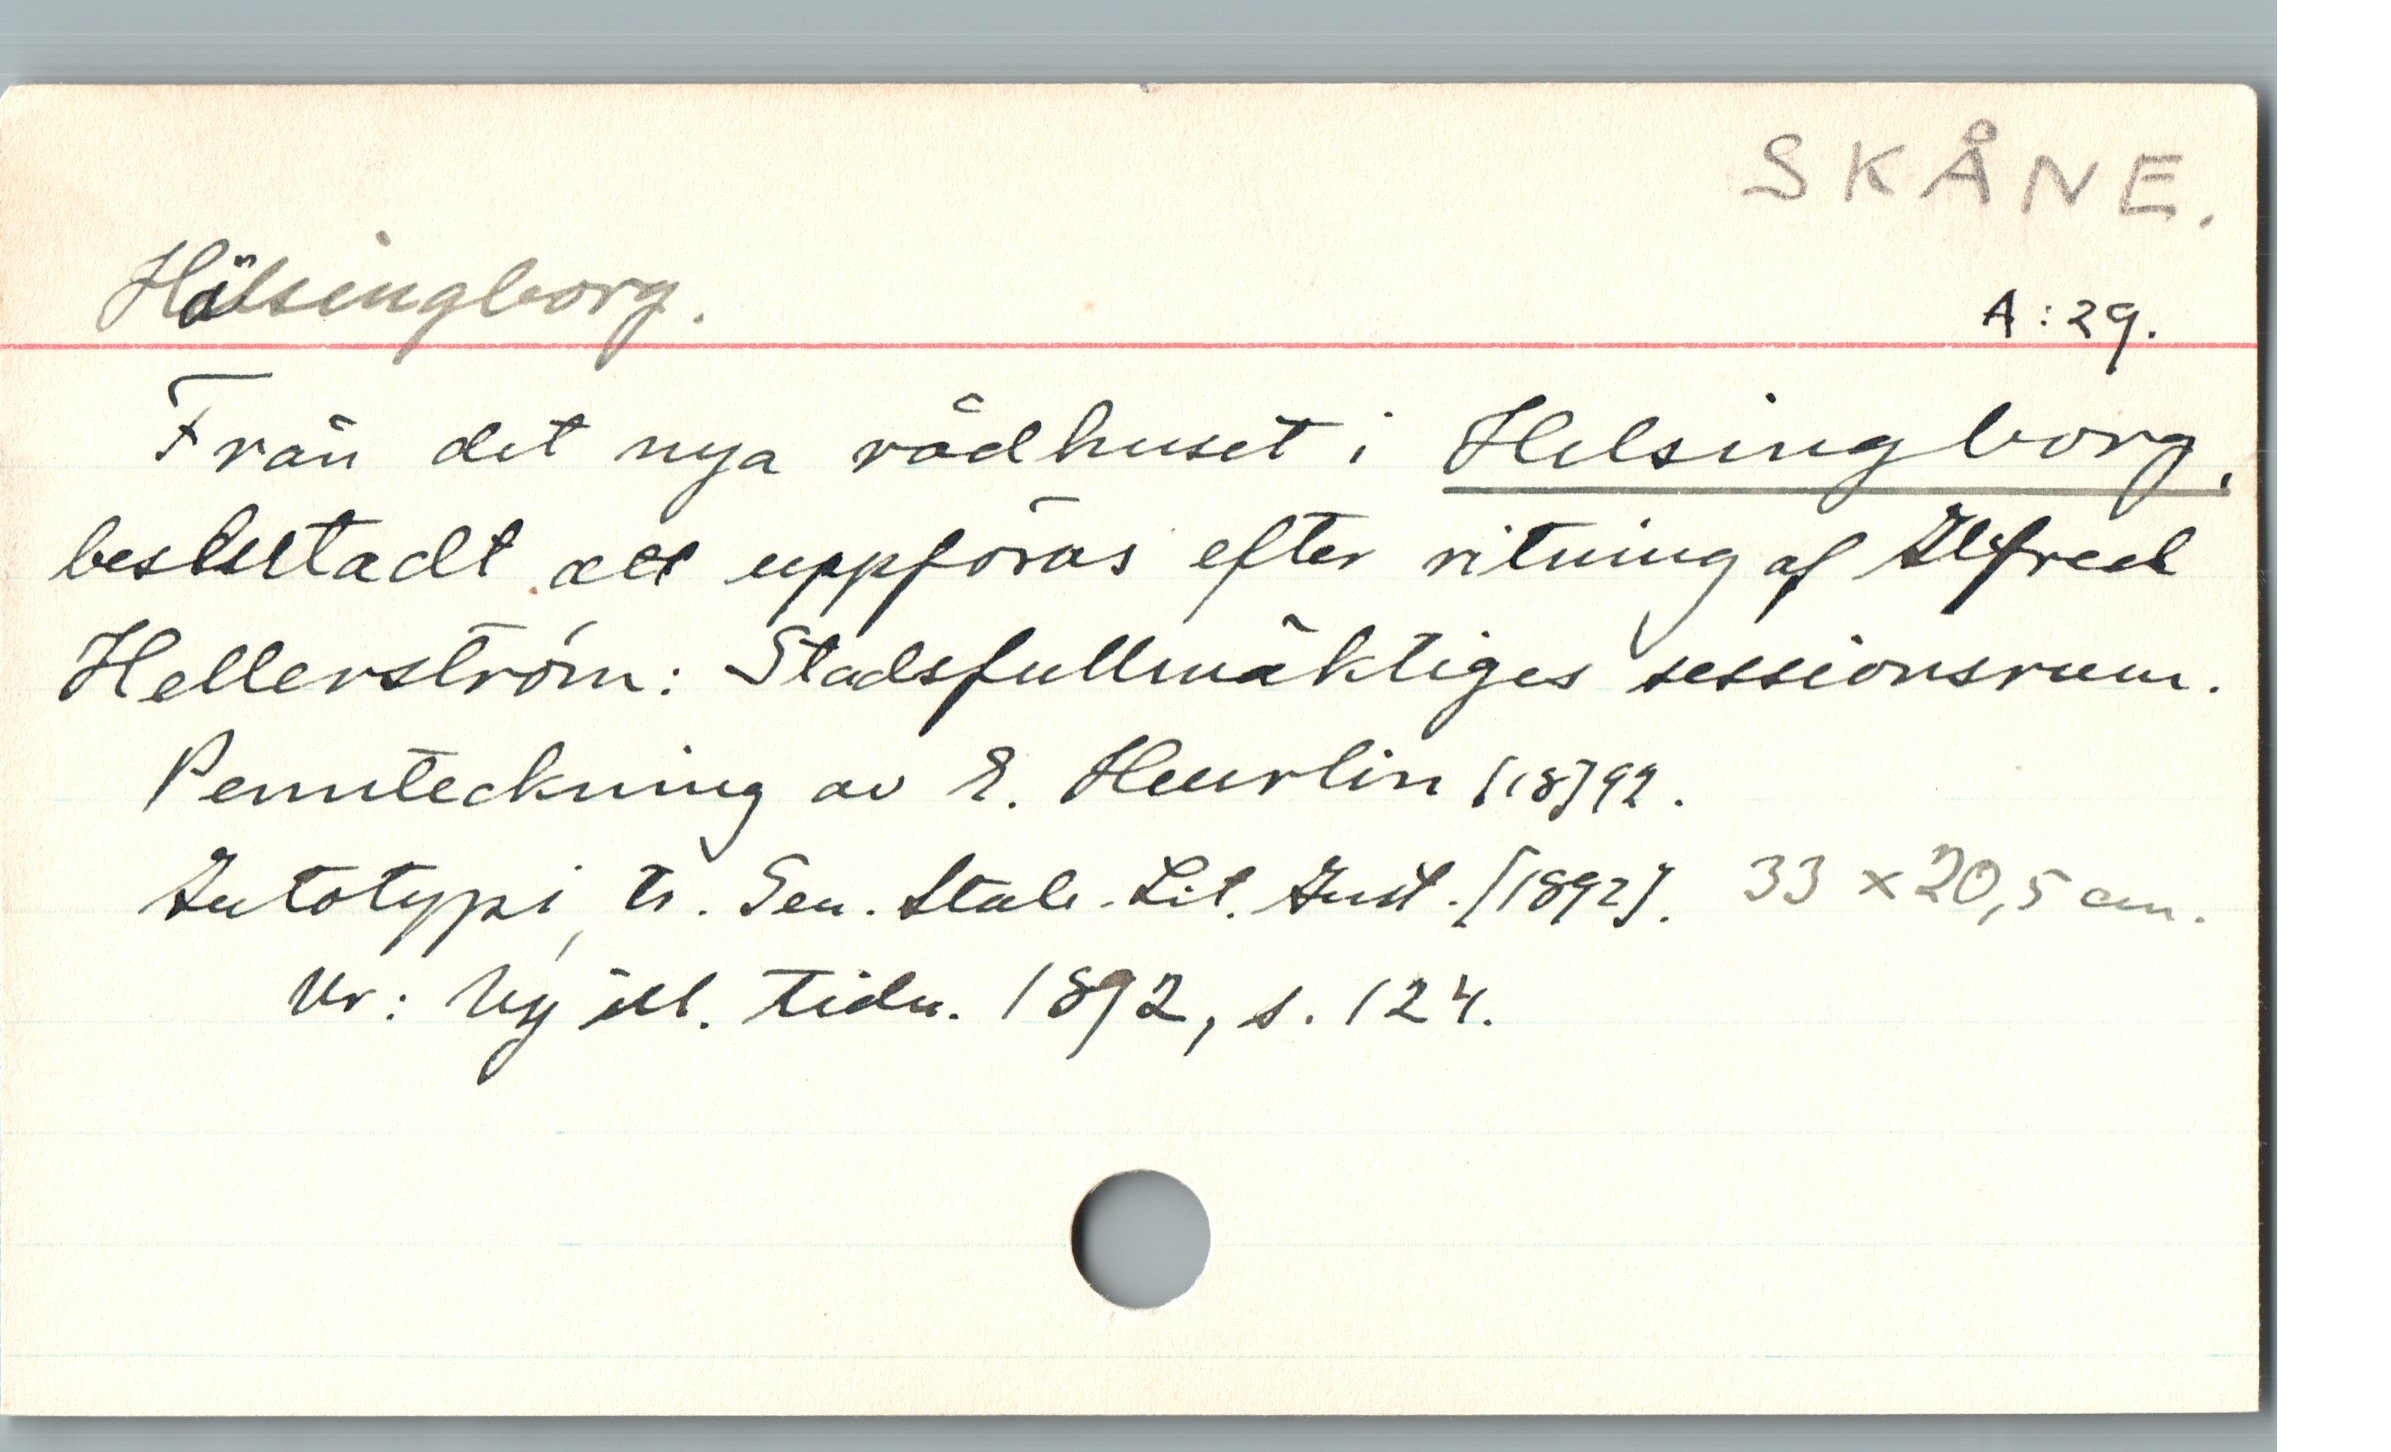 SKÅNE.
Hälsingborg.
A:29.
Från det nya rådhuset i Helsingborg,
beslutadt att uppföras efter ritning af Alfred
Hellerström: Stadsfullmäktiges sessionsrum.
Pennteckning av E. Heurlin [18]92.
Autotypi, tr. Gen. Stab. Lit. Anst. [1892]. 33 x 20,5 cm.
Ur: Ny ill. tidn. 1892, s. 124.